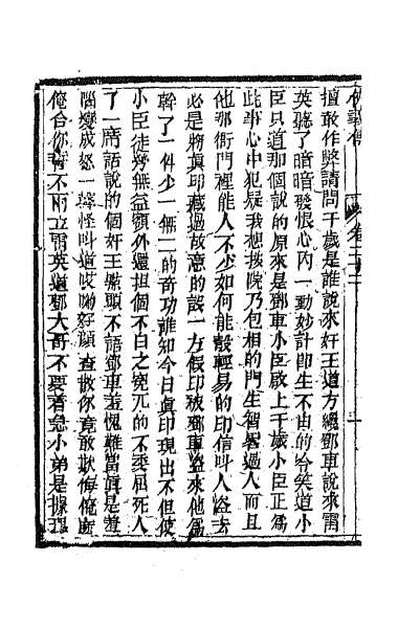 俠義傳
卷二十二
一
擅敢作弊請問千歲是誰說來奸王道方纔鄧車說來雷
英聽了暗暗發恨心內一動妙計即生不由的哈哈笑道小
臣只道那個說的原來是鄧車小臣啟上千歲小臣正爲
此事心中犯疑我想按院乃包相的門生智畧過人而且
他那衙門裡能人不少如何能彀輕易的印信叫人盜去
必是將眞印藏過故意的設一方假印被鄧車盜來他爲
幹了一件少一無二的奇功誰知今日眞印現出不但使
小臣徒勞無益額外還担個不白之寃兀的不委屈死人
了一席話說的個奸王點頭不語鄧車羞愧難當眞是羞
惱變成怒一聲怪叫道哎喲好顏查散你竟敢欺侮俺麽
俺合你誓不兩立雷英道鄧大哥不要着急小弟是據理